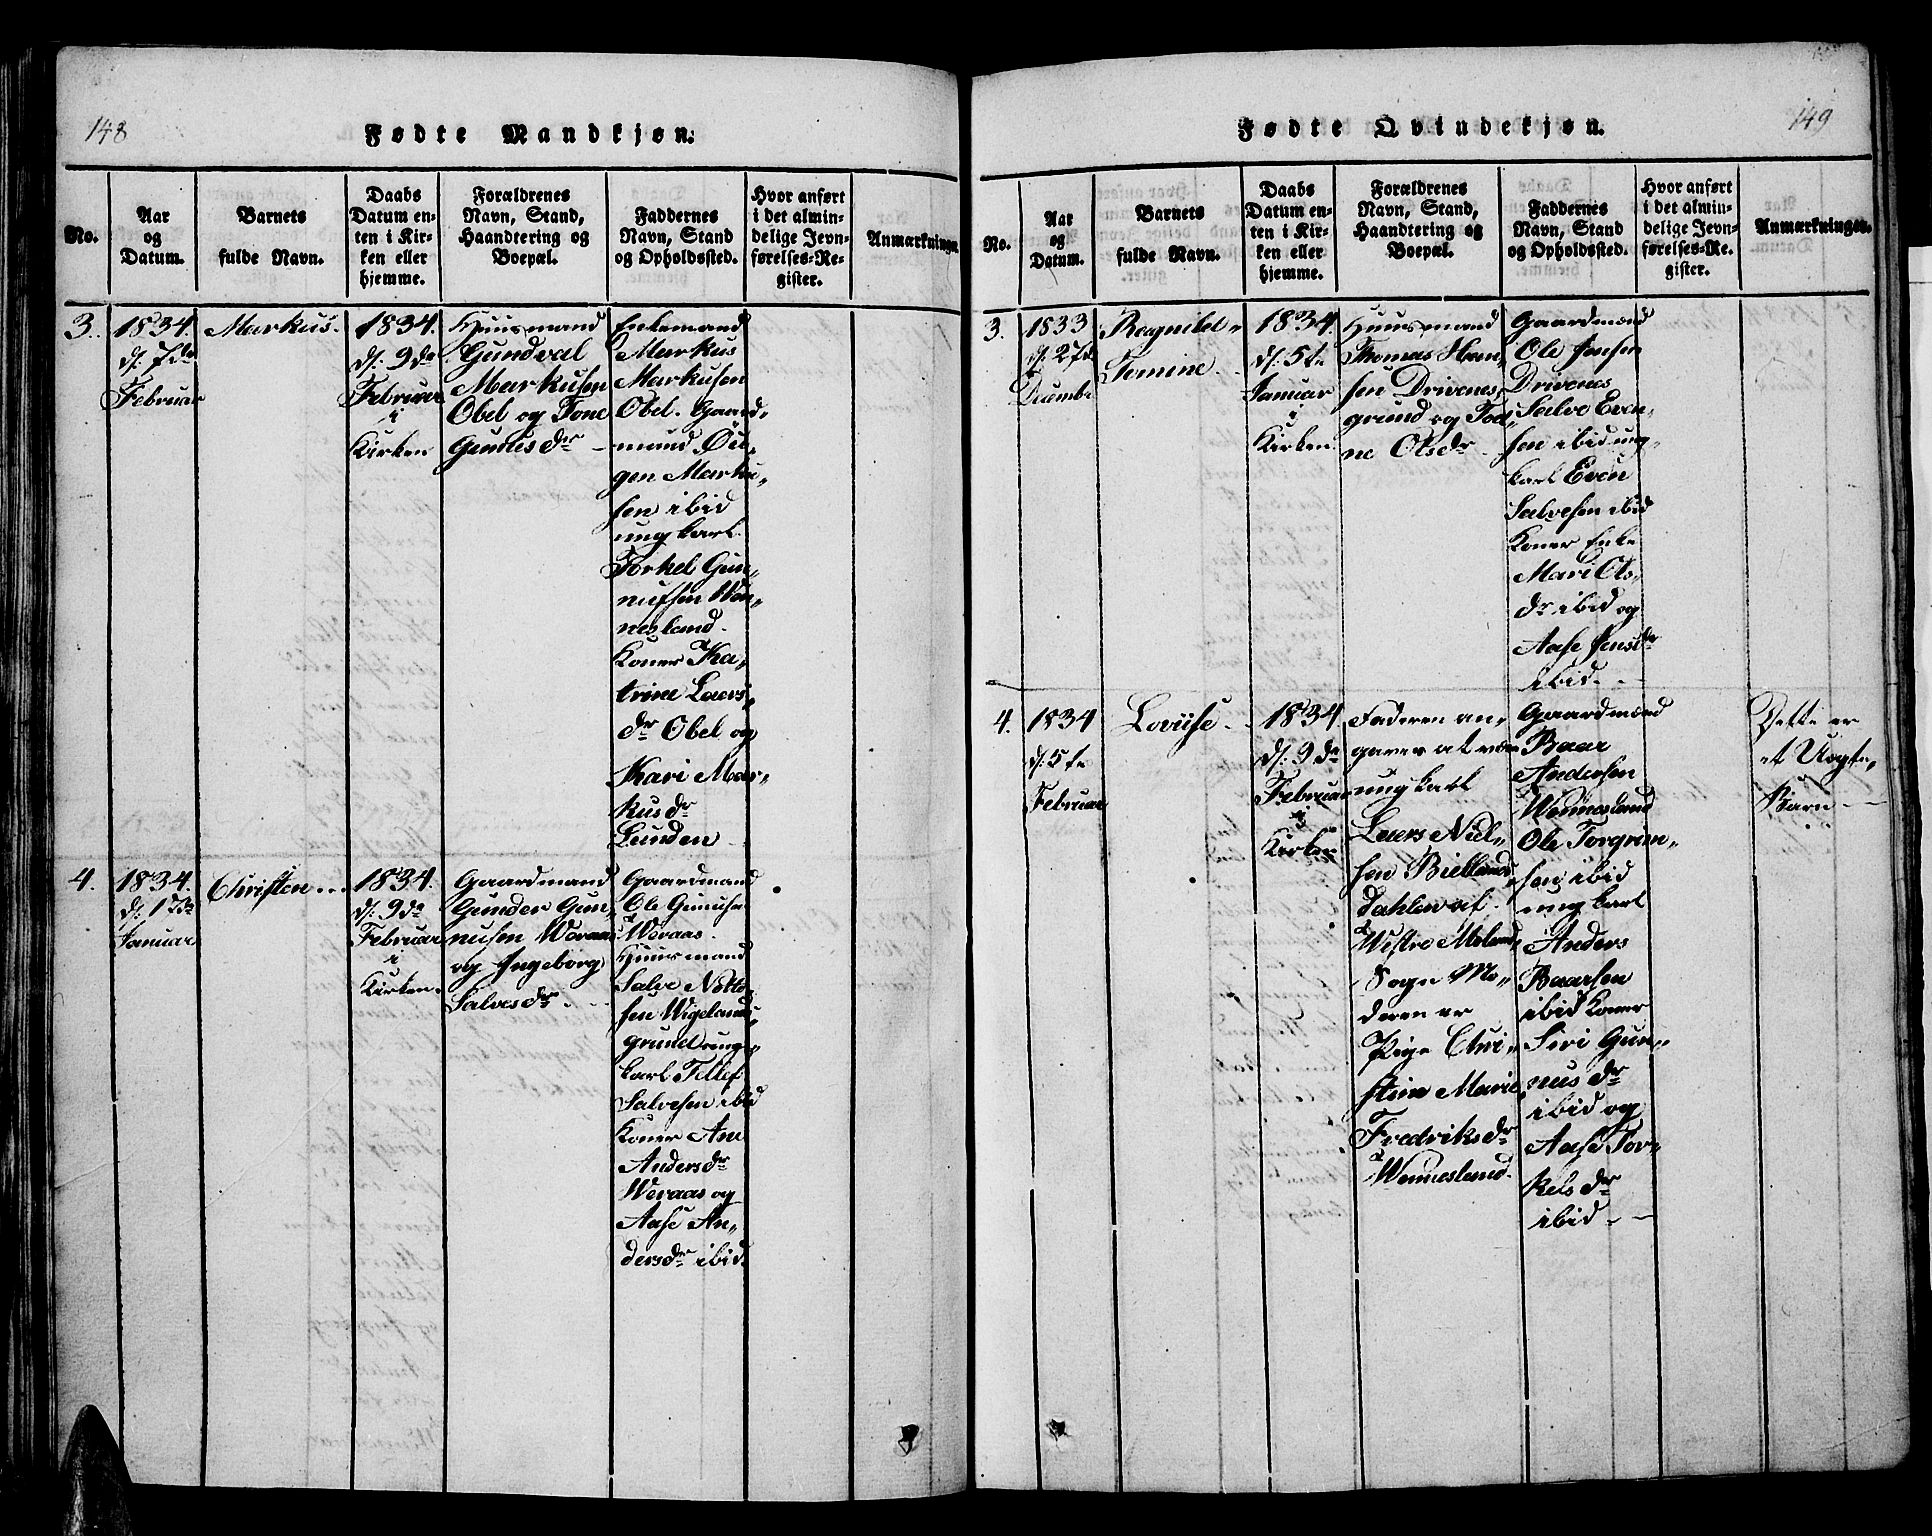 148
Fødte Mandkjøn.
No.
Aar
og
Datum.
Barnets
fulde Navn.
Daabs
Datum en-
ten i Kir-
ken eller
hjemme.
Forældrenes
Navn, Stand,
Haandtering og
Boepæl.
Faddernes
Navn, Stand
og Opholdssted.
Hvor anført
i det almin-
delige Jevn-
førelses-Re-
gister.
Anmærkninger.
3.
1834.
d: 7de
Februar
Markus.
1834.
d: 9de
Februar
i
Kirken
Huusmand
Gundval
Markusen
Obel og Tone
Gunusdr
Enkemand
Markus
Markusen
Obel. Gaard„
mand Øü„
gen Marku„
sen ibid
ungkarl
Torkel Gun„
nufsen Wen„
nesland.
Koner Ka„
trine Laers„
dr Obel og
Kari Mar„
kusdr
Lunden
4.
1834.
d: 17de
Januar
Christen
1834.
d: 9de
Februar
i
Kirken.
Gaardmand
Gunder Gun„
nusen Weraas
og Ingeborg
Salvesdr
Gaardmand
Ole Gunusen
Weraas.
Huusmand
Salve Notto„
sen Wigelands„
grund ung„
karl Tellef
Salvesen ibid
Koner Ane
Andersdr
Weraas og
Aase An„
dersdr ibid.
149
Fødte Qvindekjøn.
No.
Aar
og
Datum.
Barnets
fulde Navn.
Daabs
Datum en-
ten i Kir-
ken eller
hjemme.
Forældrenes
Navn, Stand,
Haandtering og
Boepæl.
Faddernes
Navn, Stand
og Opholdssted.
Hvor anført
i det almin-
delige Jevn-
førelses-Re-
gister.
Anmærkninger.
3.
1833
d: 27de
Decembr
Ragnilel„
Tomine
1834.
d: 5te
Januar
i
Kirken
Huusmand
Thomas Han„
sen Drivenes„
grund og Tod„
ne Olsdr
Gaardmænd
Ole Jensen
Drivenes
Salve Even„
sen ibid ung„
karl Even
Salvesen ibid
Koner Enke
Mari Ols„
dr ibid og
Aase Jensdr
ibid.
4.
1834
d: 5te
Februar
Lovüse
1834.
d: 9de
Februar
i
Kirken
Faderen an„
gaves at være
ungkarl
Laers Niel„
sen Biellands„
dahlen af
Westre Moland„
Sogn Mo„
deren er
Pige Chri„
stine Marie
Fredriksdr
Wennesland.
Gaardmænd
Baar
Andersen
Wennesland
Ole Torgrim„
sen ibid
ungkarl
Anders
Baarsen
ibid Koner
Siri Gun„
nusdr
ibid og
Aase Tor„
kelsdr
ibid
Dette er
et Uegte„
Barn